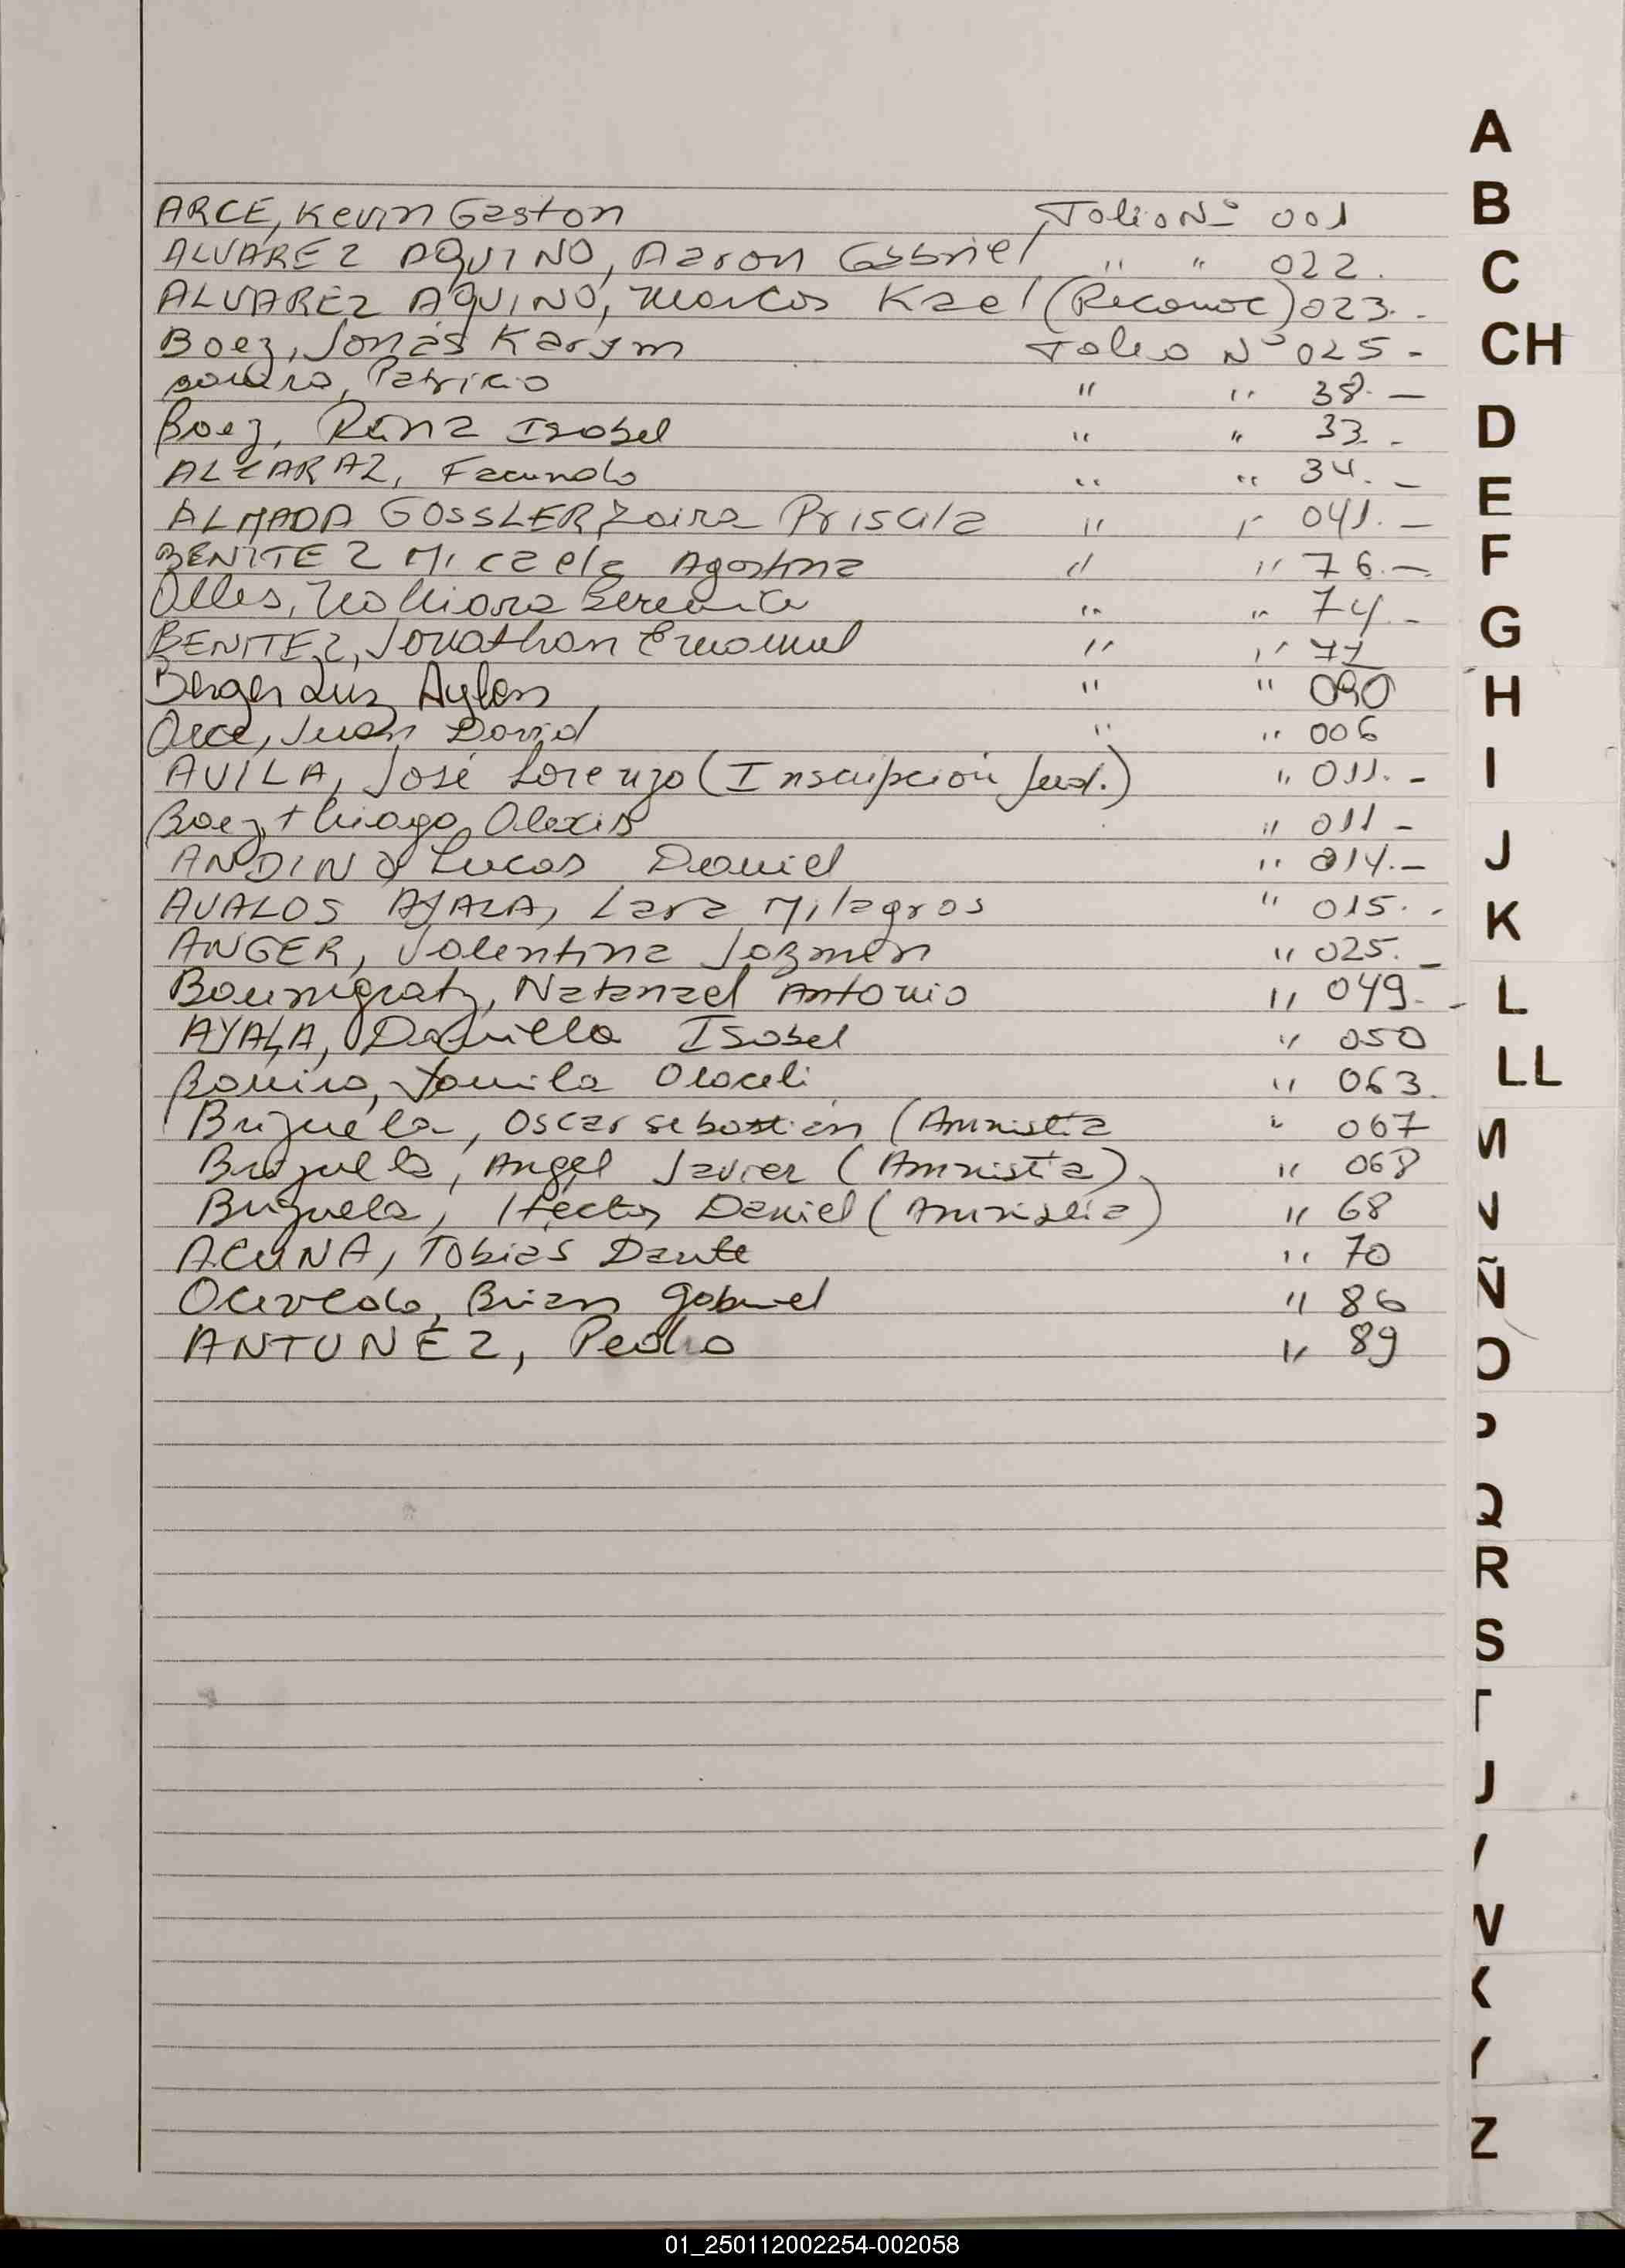 ARCE, Kevin Gaston Folio Nº 001
ALVAREZ AQUINO, Aaron Gabriel " " 022.
ALVAREZ AQUINO, Marcos Kael (Reconoc) 023.-
Baez, Jonás Karym Folio Nº 025-
Patricio " " 38.-
Baez, Isabel " " 33.-
ALCARAZ, Facundo " " 34.-
ALMADA GOSSLER, Zaira Priscila " " 041.-
BENITEZ Micaela Agostina " " 76.-
" " 74.-
BENITEZ, Jonathan Emanuel " " 77
Berger Luz Aylen " " 090
Arce, Juan David " " 006
AVILA, José Lorenzo (Inscripción Jud.) " 011.-
Baez thiago Alexis " 011-
ANDINO Lucas Daniel " 014.-
AVALOS AYALA, Lara Milagros " 015.-
ANGER, Valentina Jazmen " 025.-
Baumgratz, Natanael Antonio " 049.-
AYALA, Isabel " 050
Araceli " 063.
Brizuela, Oscar sebastián (Amnistia " 067
Brizuela, Angel Javier (Amnistia) " 068
Brizuela, Hector Daniel (Amnistia) " 68
ACUNA, Tobias Dante " 70
Acevedo, Brian Gabriel " 86
ANTUNEZ, Pedro " 89
A
B
C
CH
D
E
F
G
H
I
J
K
L
LL
Ñ
O
Q
R
S
J
Z
01_250112002254-002058